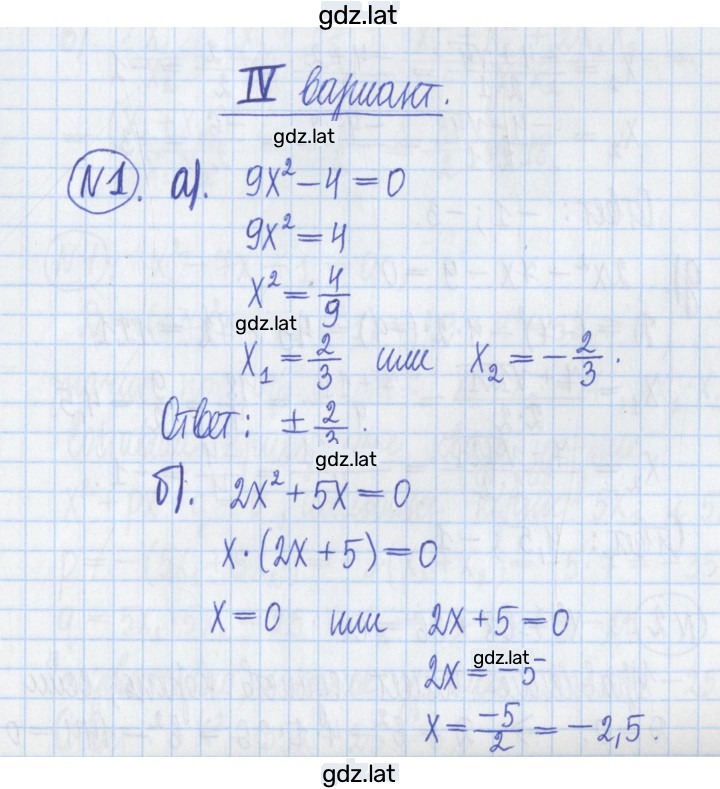 gdz.lat
IV вариант.
gdz.lat
№1. а). 9x² – 4 = 0
9x² = 4
x² = 4/9
gdz.lat
x₁ = 2/3 или x₂ = – 2/3.
Ответ: ± 2/3.
gdz.lat
б). 2x² + 5x = 0
x · (2x + 5) = 0
x = 0 или 2x + 5 = 0
gdz.lat
2x = –5
x = –5/2 = –2,5.
gdz.lat